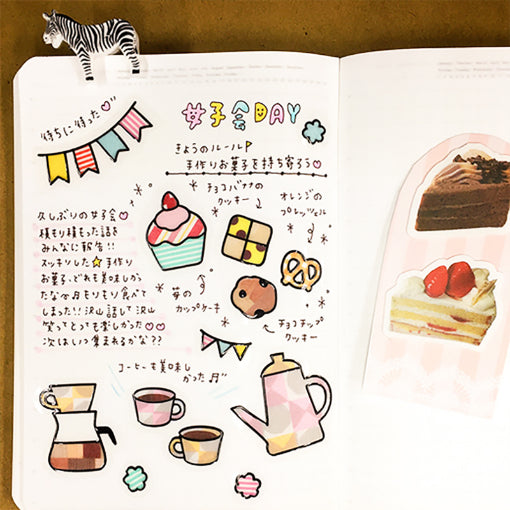 待ちに待った♡"
女子会DAY
きょうのルール
手作りお菓子を持ち寄ろう♡
チョコバナナの
クッキー
オレンジの
プレッツェル
久しぶりの女子会♡
積もり積もった話を
みんなに報告!!
スッキリした☆手作り
お菓子、どれも美味しか
たな〜♪もりもり食べて
しまった!!沢山話して沢山
笑ってとても楽しかった♡♡
次はいつ集まれるかな??
苺の
カップケーキ
チョコチップ
クッキー
コーヒーも美味し
かった♬"